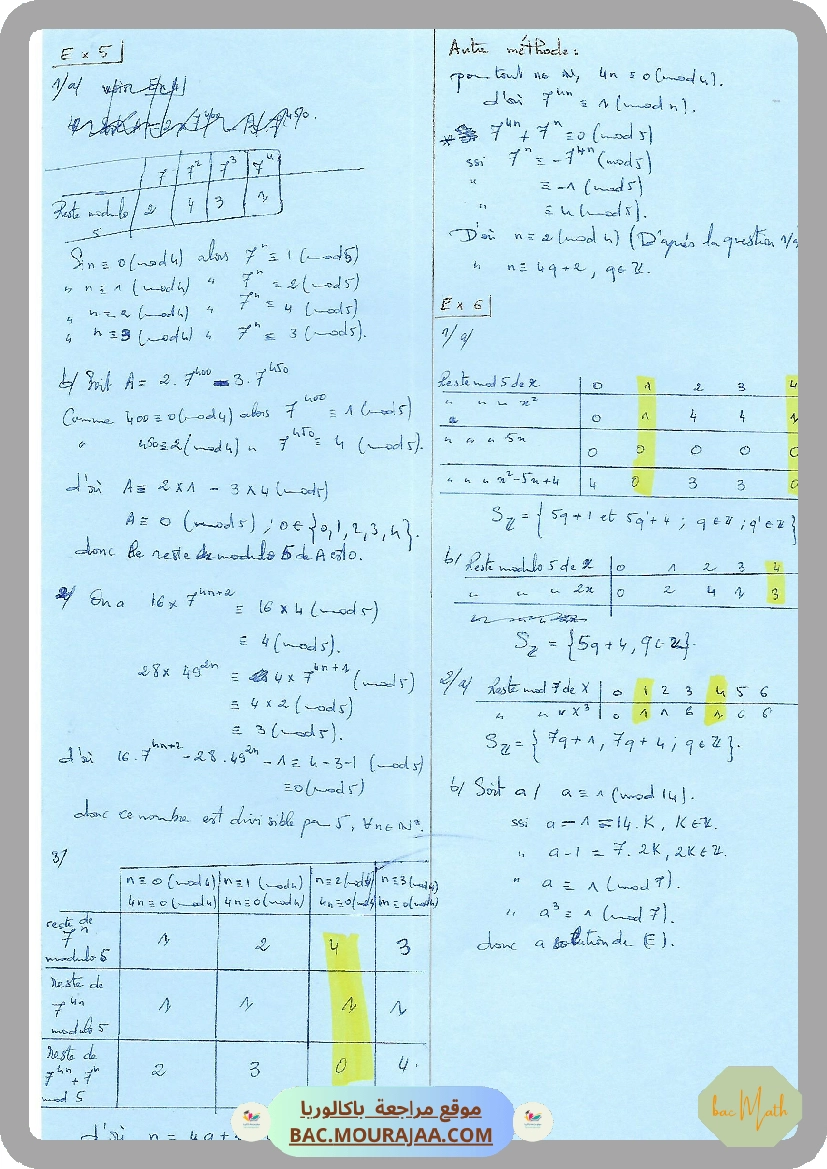 Ex 5
1/a/
7 | 7² | 7³ | 7⁴
Reste modulo 5 | 2 | 4 | 3 | 1
Si n ≡ 0 (mod 4) alors 7ⁿ ≡ 1 (mod 5)
" n ≡ 1 (mod 4) " 7ⁿ ≡ 2 (mod 5)
" n ≡ 2 (mod 4) " 7ⁿ ≡ 4 (mod 5)
" n ≡ 3 (mod 4) " 7ⁿ ≡ 3 (mod 5).
b/ Soit A = 2.7⁴⁰⁰ - 3.7⁴⁵⁰
Comme 400 ≡ 0 (mod 4) alors 7⁴⁰⁰ ≡ 1 (mod 5)
" 450 ≡ 2 (mod 4) " 7⁴⁵⁰ ≡ 4 (mod 5).
d'où A ≡ 2×1 - 3×4 (mod 5)
A ≡ 0 (mod 5) ; 0 ∈ {0,1,2,3,4}.
donc le reste modulo 5 de A est 0.
2/ On a 16 × 7⁴ⁿ⁺² ≡ 16 × 4 (mod 5)
≡ 4 (mod 5).
28 × 49²ⁿ ≡ 4 × 7⁴ⁿ⁺¹ (mod 5)
≡ 4 × 2 (mod 5)
≡ 3 (mod 5).
d'où 16.7⁴ⁿ⁺² - 28.49²ⁿ - 1 ≡ 4-3-1 (mod 5)
≡ 0 (mod 5)
donc ce nombre est divisible par 5, ∀n∈ℕ*.
3/
n ≡ 0 (mod 4) | n ≡ 1 (mod 4) | n ≡ 2 (mod 4) | n ≡ 3 (mod 4)
4n ≡ 0 (mod 4) | 4n ≡ 0 (mod 4) | 4n ≡ 0 (mod 4) | 4n ≡ 0 (mod 4)
reste de 7ⁿ modulo 5 | 1 | 2 | 4 | 3
Reste de 7⁴ⁿ modulo 5 | 1 | 1 | 1 | 1
Reste de 7⁴ⁿ + 7ⁿ mod 5 | 2 | 3 | 0 | 4.
d'où n = 4q +
Autre méthode :
pour tout n ∈ ℕ, 4n ≡ 0 (mod 4).
d'où 7⁴ⁿ ≡ 1 (mod n).
* 7⁴ⁿ + 7ⁿ ≡ 0 (mod 5)
ssi 7ⁿ ≡ -7⁴ⁿ (mod 5)
" ≡ -1 (mod 5)
" ≡ 4 (mod 5).
D'où n ≡ 2 (mod 4) (D'après la question 1/a
" n = 4q+2, q∈ℤ.
Ex 6
1/ a/
Reste mod 5 de x | 0 | 1 | 2 | 3 | 4
" " " x² | 0 | 1 | 4 | 4 | 1
" " " 5x | 0 | 0 | 0 | 0 | 0
" " " x²-5x+4 | 4 | 0 | 3 | 3 | 0
Sℤ = {5q+1 et 5q'+4 ; q∈ℤ ; q'∈ℤ}
b/ Reste modulo 5 de x | 0 | 1 | 2 | 3 | 4
" " " 2x | 0 | 2 | 4 | 1 | 3
Sℤ = {5q+4, q∈ℤ}.
2/a/ Reste mod 7 de x | 0 | 1 | 2 | 3 | 4 | 5 | 6
" " " x³ | 0 | 1 | 1 | 6 | 1 | 6 | 6
Sℤ = {7q+1, 7q+4 ; q∈ℤ}.
b/ Soit a / a ≡ 1 (mod 14).
ssi a - 1 = 14.K, K∈ℤ.
" a-1 = 7.2K, 2K∈ℤ.
" a ≡ 1 (mod 7).
" a³ ≡ 1 (mod 7).
donc a solution de (E).
موقع مراجعة باكالوريا
BAC.MOURAJAA.COM
bac Math